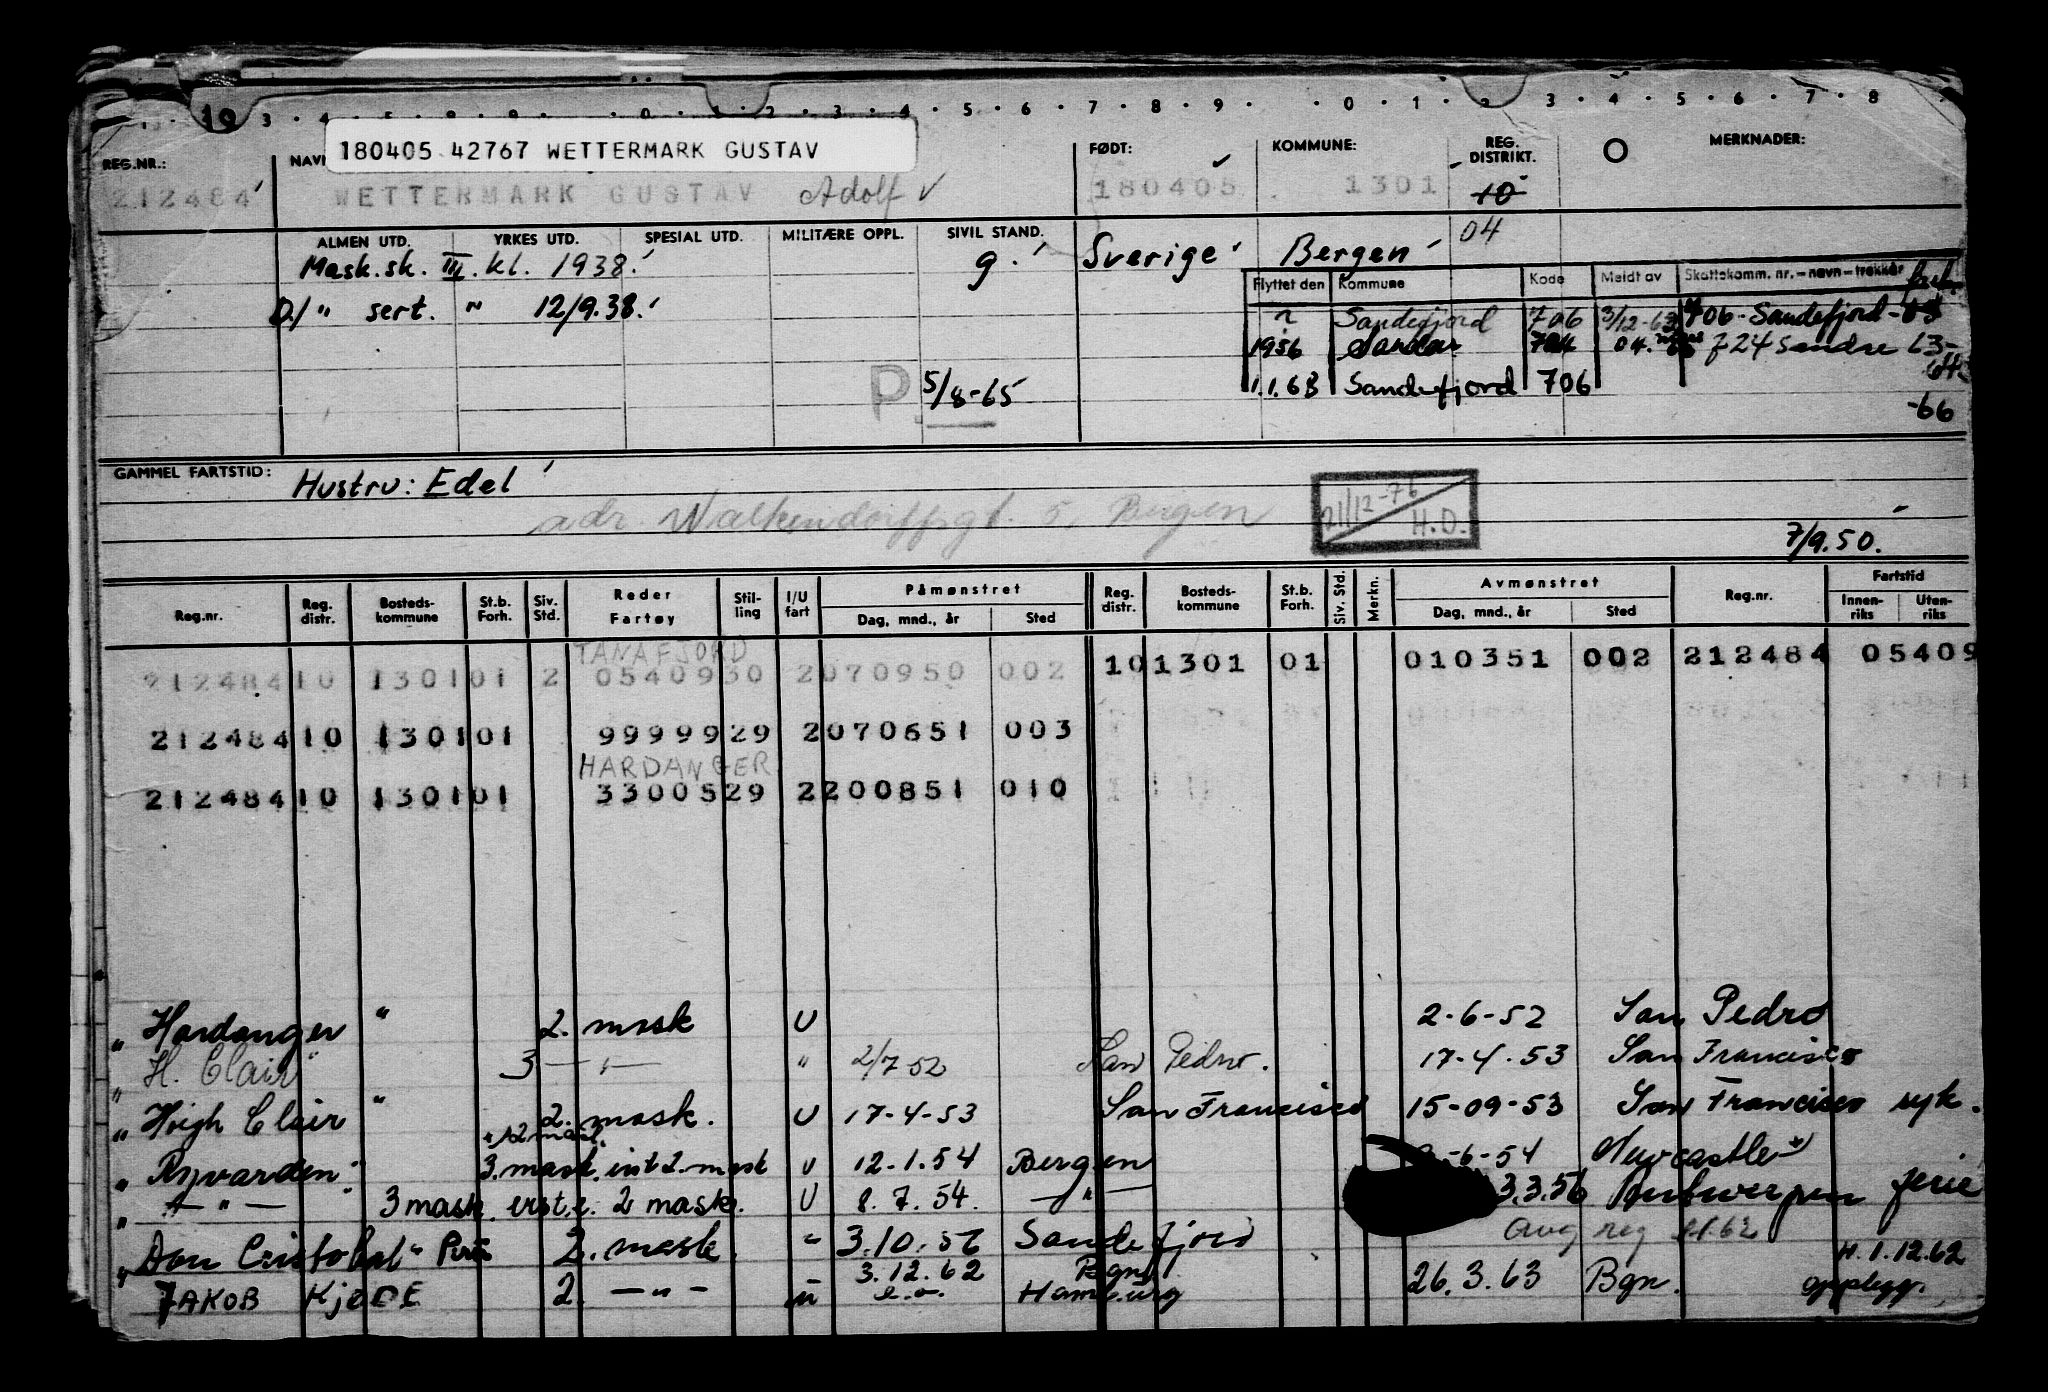 180405 42767 WETTERMARK GUSTAV
REG.NR.: FØDT: KOMMUNE: REG. DISTRIKT. MERKNADER:
212484 WETTERMARK GUSTAV Adolf 180405 1301 10
04
ALMEN UTD. YRKES UTD. SPESIAL UTD. MILITÆRE OPPL. SIVIL STAND.
Mask.sk. III. kl. 1938. g. Sverige Bergen
D./ " sert. " 12/9.38.
Flyttet den Kommune Kode Meldt av Skattekomm. nr. – navn – trekkår
Sandefjord 706 3/12-63 706 - Sandefjord -
1956 Sandar 724 724 Sandre 63-
64
1.1.63 Sandefjord 706
-66
P. 5/8-65
GAMMEL FARTSTID: Hustru: Edel
adr. Walkendorffsgt. 5, Bergen
21/12-76 H.D.
7/9.50.
Reg.nr. Reg. distr. Bosteds-kommune St.b. Forh. Siv. Std. Reder Fartøy Stil-ling I/U fart Påmønstret Dag, mnd., år Sted Reg. distr. Bosteds-kommune St.b. Forh. Siv. Std. Merkn. Avmønstret Dag, mnd., år Sted Reg.nr. Fartstid Innen-riks Uten-riks
TANAFJORD
212484 10 1301 01 2 05409 30 2 070950 002 10 1301 01 010351 002 212484 05409
212484 10 1301 01 99999 29 2 070651 003
HARDANGER
212484 10 1301 01 33005 29 2 200851 010
" Hardanger " 2. mask U 2-6-52 San Pedro
" H. Clair " 3 — " — " 2/7 52 San Pedro. 17-4-53 San Francisco
" High Clair " 2. mask. U 17-4-53 San Francisco 15-09-53 San Francisco syk.
" Ryvarden " 3. mask. 2. mask U 12.1.54 Bergen -6-54 Newcastle
" — " — 3 mask. 2 mask. U 8.7.54. — " — 3.3.56 Antwerpen ferie
" Don Cristobal " 2. mask. " 3.10.56 Sandefjord avg reg
JAKOB KJØDE 2. — " — 3.12.62 Bgn Hamburg 26.3.63 Bgn. 1.12.62 opplegg.